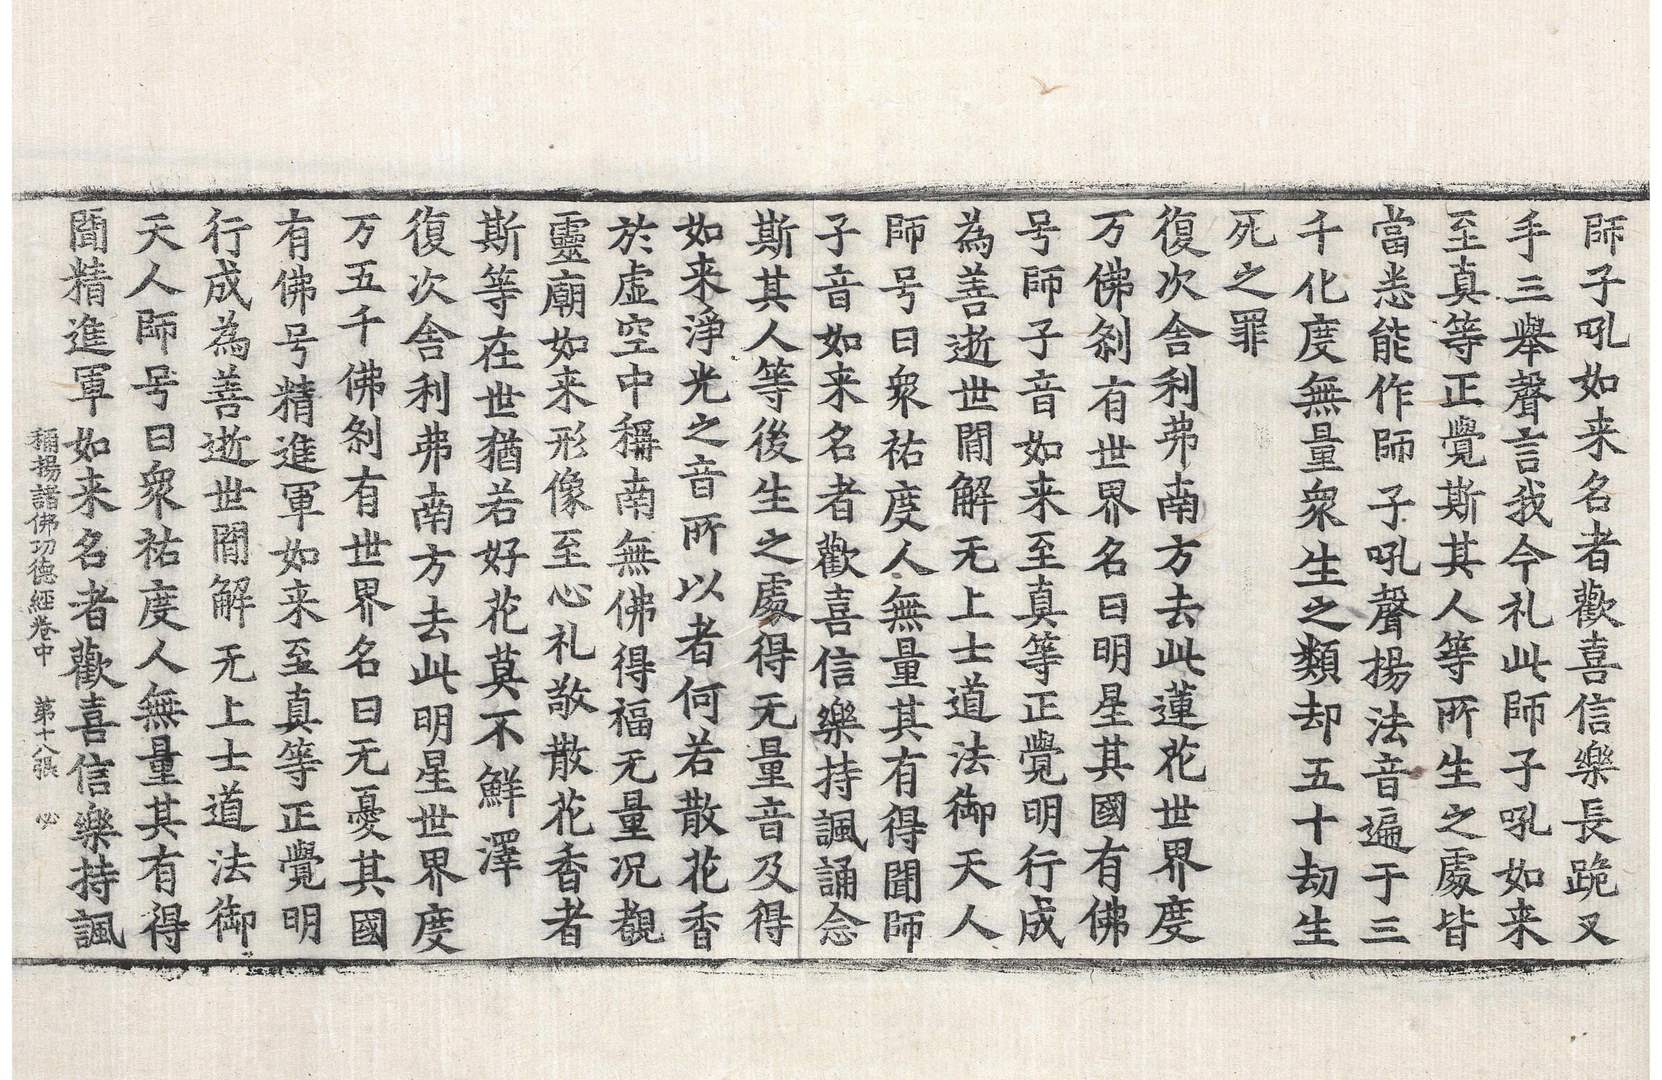 師子吼如来名者歡喜信樂長跪叉
手三舉聲言我今礼此師子吼如来
至真等正覺斯其人等所生之處皆
當悉能作師子吼聲揚法音遍于三
千化度無量衆生之類却五十劫生
死之罪
復次舎利弗南方去此蓮花世界度
万佛刹有世界名曰明星其國有佛
号師子音如来至真等正覺明行成
為善逝世間解无上士道法御天人
師号曰衆祐度人無量其有得聞師
子音如来名者歡喜信樂持諷誦念
斯其人等後生之處得无量音及得
如来淨光之音所以者何若散花香
於虚空中稱南無佛得福无量况覩
靈廟如来形像至心礼敬散花香者
斯等在世猶若好花莫不鮮澤
復次舎利弗南方去此明星世界度
万五千佛刹有世界名曰无憂其國
有佛号精進軍如来至真等正覺明
行成為善逝世間解无上士道法御
天人師号曰衆祐度人無量其有得
聞精進軍如来名者歡喜信樂持諷
稱揚諸佛功德經卷中　第十八張　必